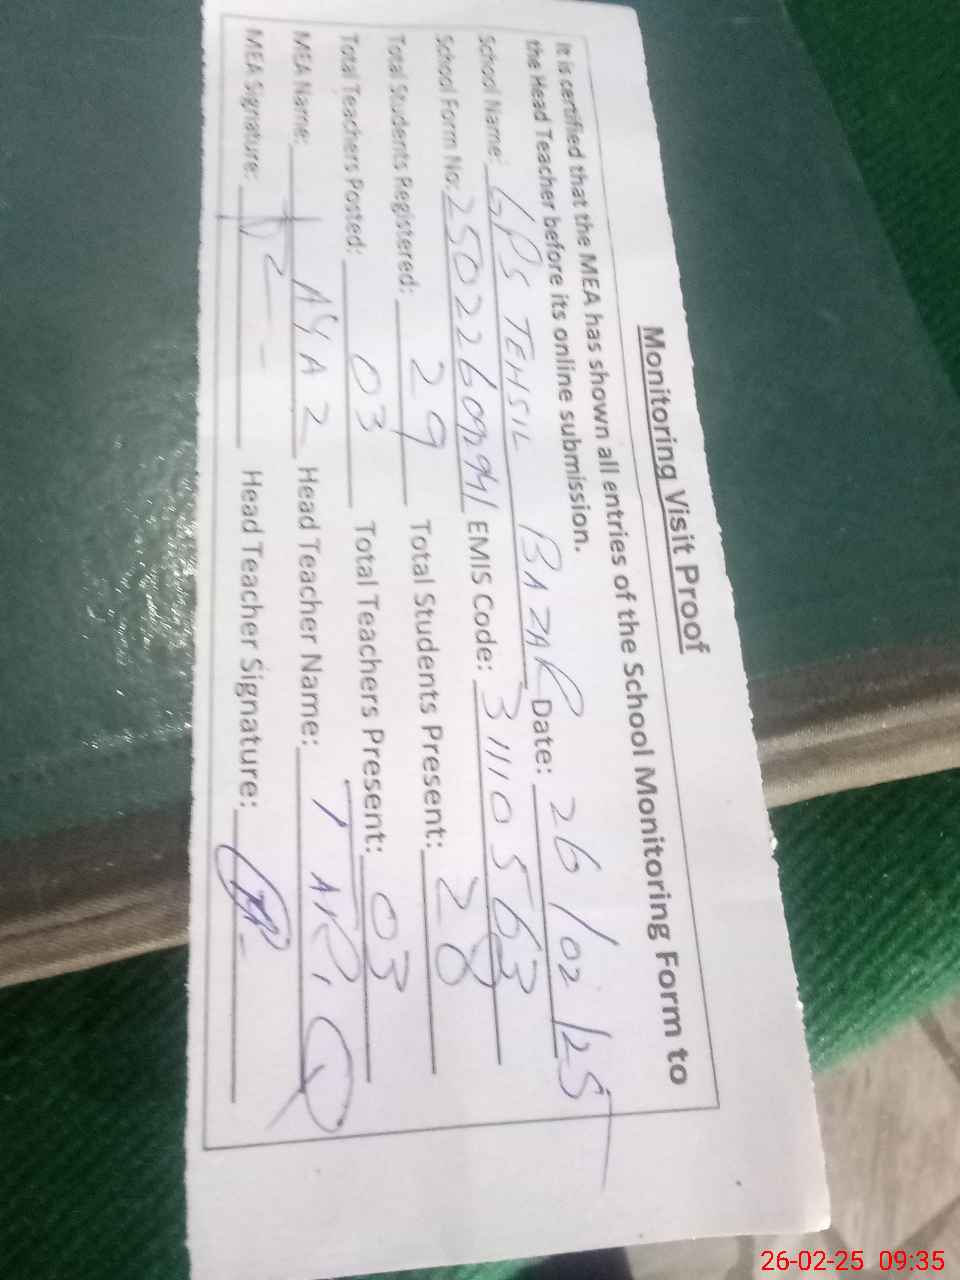 Monitoring Visit Proof
It is certified that the MEA has shown all entries of the School Monitoring Form to
the Head Teacher before its online submission.
School Name: GPS TEHSIL BAZAR Date: 26/02/25
School Form No: 250226092941 EMIS Code: 31110563
Total Students Registered: 29 Total Students Present: 28
Total Teachers Posted: 03 Total Teachers Present: 03
MEA Name: Head Teacher Name: TARIQ
MEA Signature: Head Teacher Signature:
26-02-25 09:35